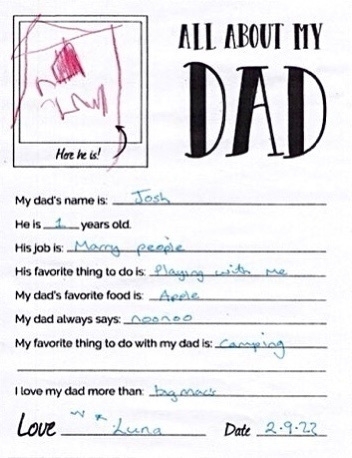 ALL ABOUT MY
DAD
Here he is!
My dad's name is: Josh
He is 1 years old.
His job is: Marry people
His favorite thing to do is: Playing with me
My dad's favorite food is: Apple
My dad always says: noonoo
My favorite thing to do with my dad is: Camping
I love my dad more than: big macs
Love Luna Date 2.9.22